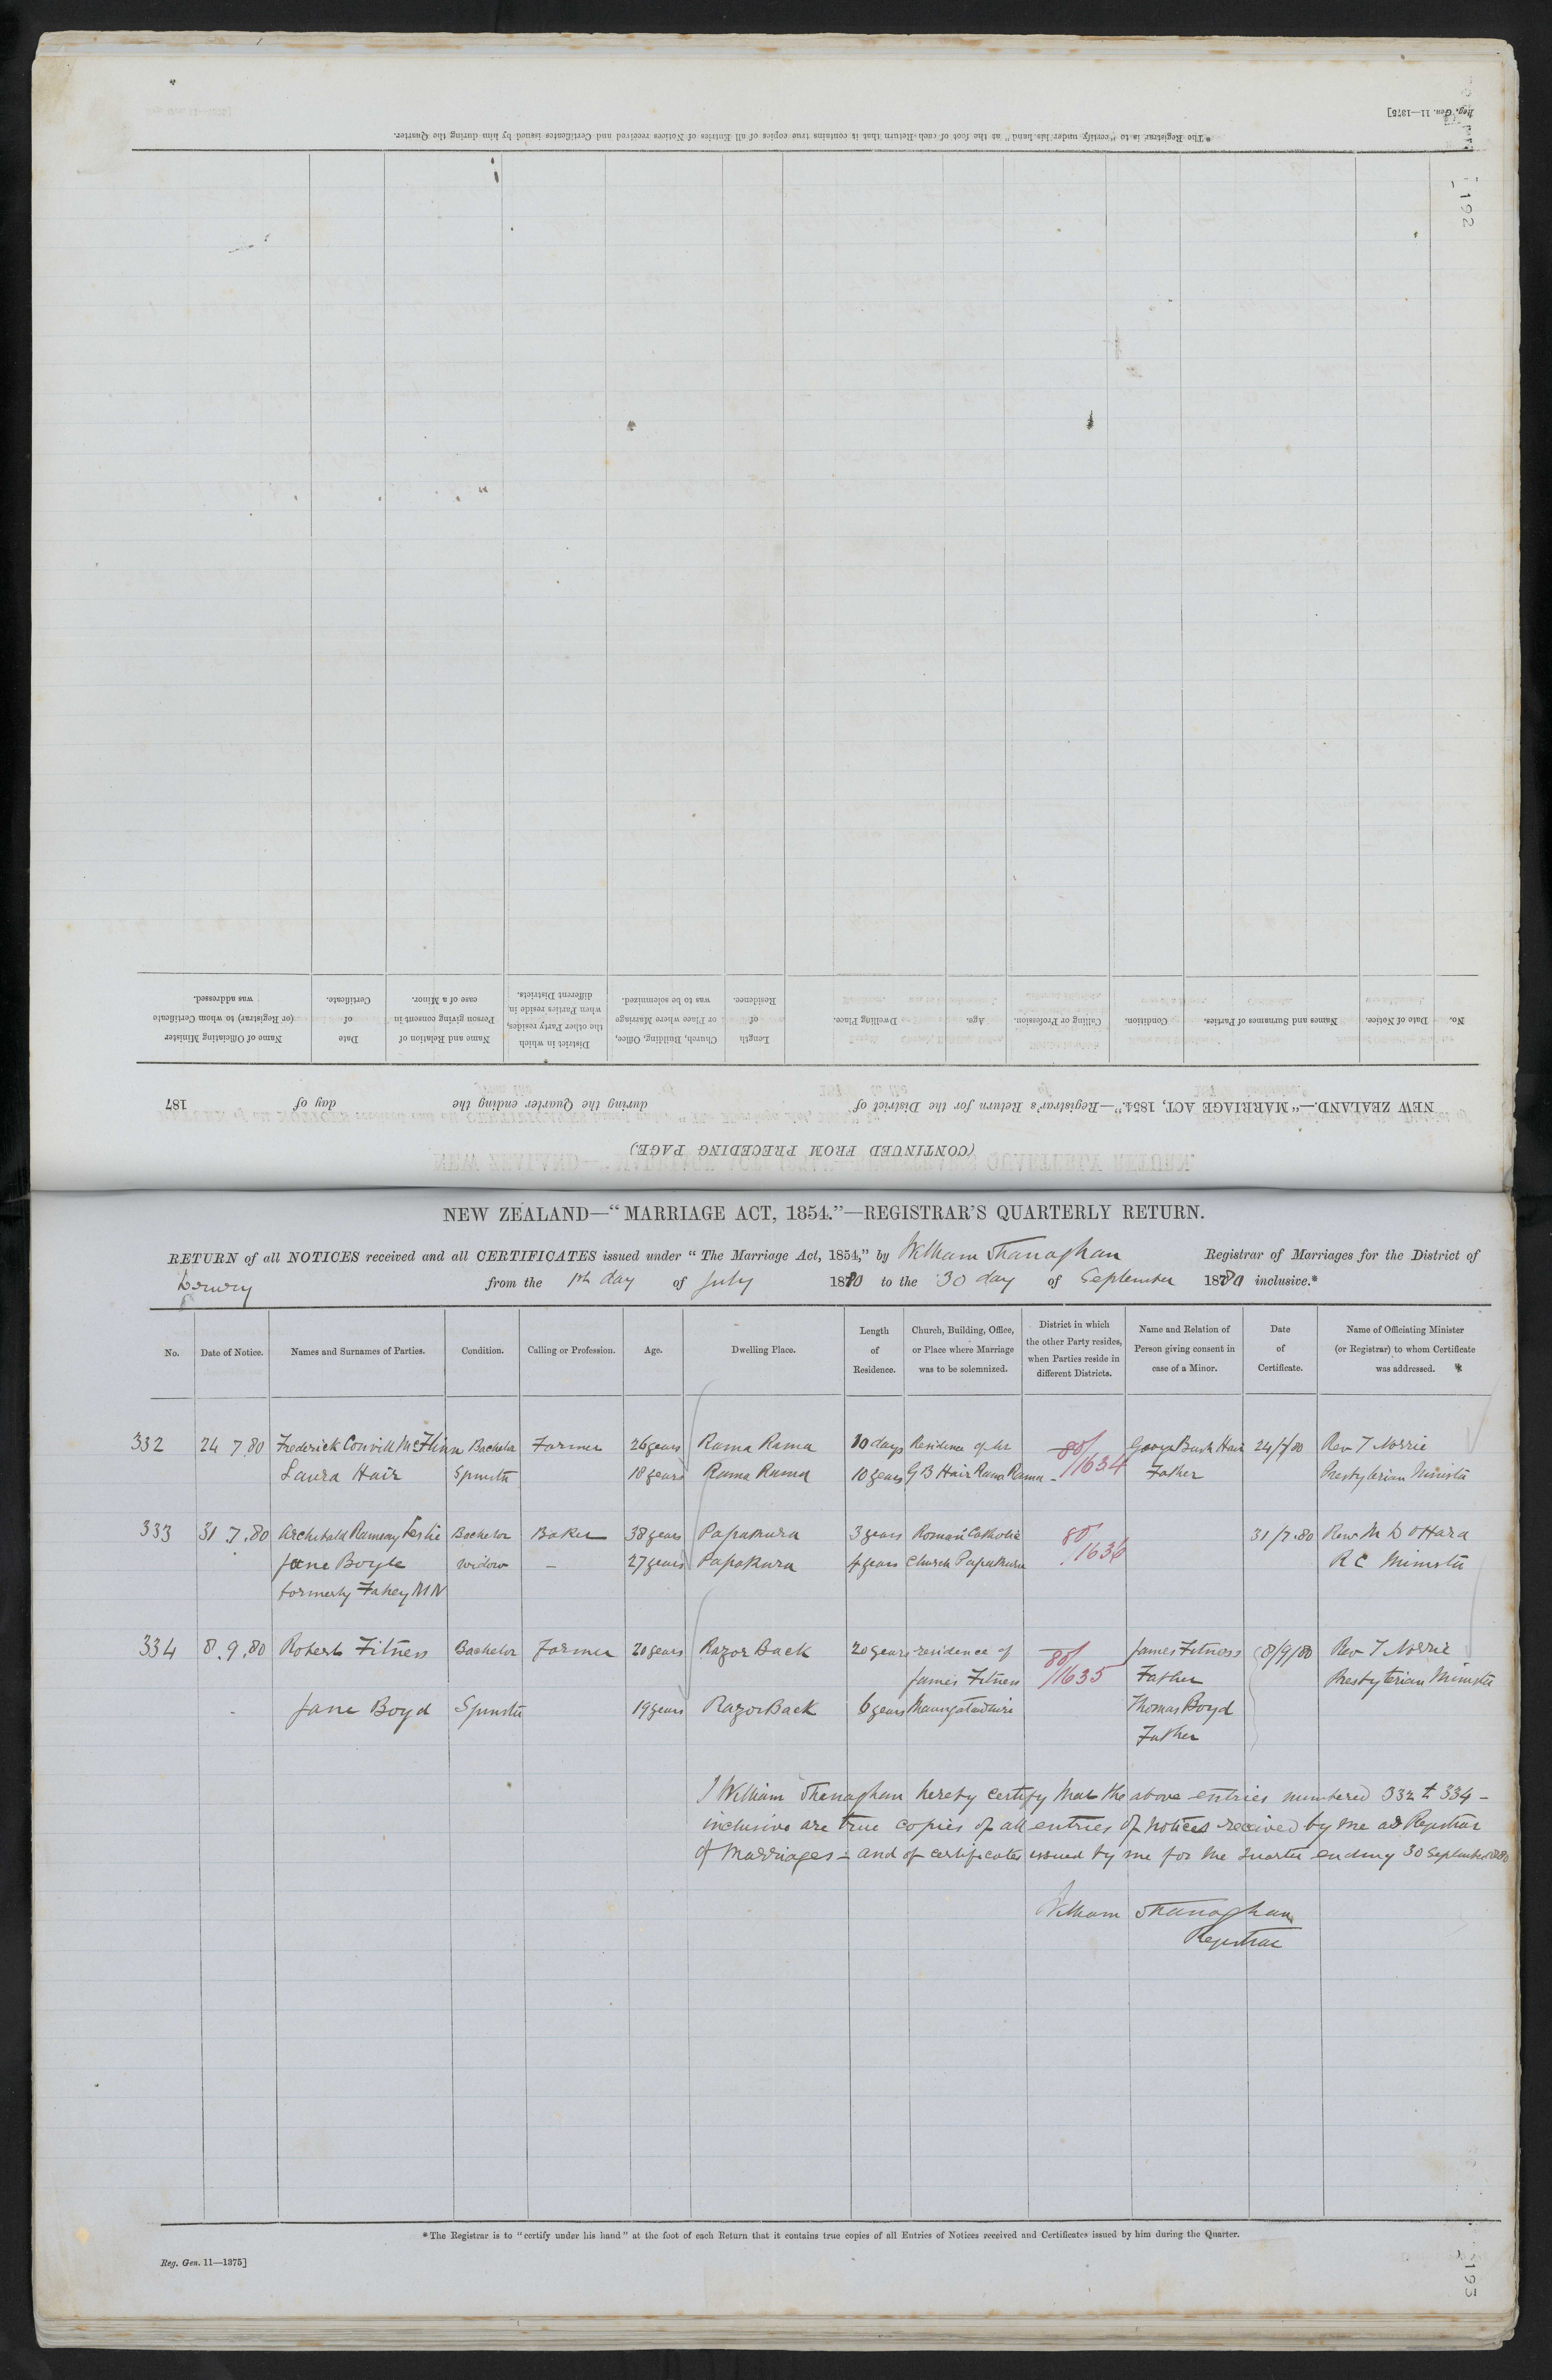 Reg. Gen. 11—1375]
* The Registrar is to "certify under his hand" at the foot of each Return that it contains true copies of all Entries of Notices received and Certificates issued by him during the Quarter.
192
(CONTINUED FROM PRECEDING PAGE.)
NEW ZEALAND.—"MARRIAGE ACT, 1854."—Registrar's Return for the District of during the Quarter ending the day of 187
No. Date of Notice. Names and Surnames of Parties. Condition. Calling or Profession. Age. Dwelling Place. Length of Residence. Church, Building, Office, or Place where Marriage was to be solemnized. District in which the other Party resides, when Parties reside in different Districts. Name and Relation of Person giving consent in case of a Minor. Date of Certificate. Name of Officiating Minister (or Registrar) to whom Certificate was addressed.
NEW ZEALAND—"MARRIAGE ACT, 1854."—REGISTRAR'S QUARTERLY RETURN.
RETURN of all NOTICES received and all CERTIFICATES issued under "The Marriage Act, 1854," by William Thanaghan Registrar of Marriages for the District of
Drury from the 1st day of July 1880 to the 30 day of September 1880 inclusive.*
No. Date of Notice. Names and Surnames of Parties. Condition. Calling or Profession. Age. Dwelling Place. Length of Residence. Church, Building, Office, or Place where Marriage was to be solemnized. District in which the other Party resides, when Parties reside in different Districts. Name and Relation of Person giving consent in case of a Minor. Date of Certificate. Name of Officiating Minister (or Registrar) to whom Certificate was addressed. *
332 24 7.80 Frederick Convill McFlinn Bachelor Farmer 26 years Rama Rama 10 days Residence of Mr 80/1634 George Buck Hair 24/7/80 Rev T Norrie
Laura Hair Spinster 18 years Rama Rama 10 years G B Hair Rama Rama Father Presbyterian Minister
333 31.7.80 Archibald Ramsay Leslie Bachelor Baker 38 years Papakura 3 years Roman Catholic 80/1636 31/7.80 Rev M D OHara
Jane Boyle Widow — 27 years Papakura 4 years Church Papakura R C Minister
formerly Fahey MN
334 8.9.80 Robert Fitness Bachelor Farmer 20 years Razor Back 20 years residence of 80/1635 James Fitness 8/9/80 Rev T Norrie
James Fitness Father Presbyterian Minister
Jane Boyd Spinster 19 years Razor Back 6 years Maungatawhiri Thomas Boyd
Father
I William Thanaghan hereby certify that the above entries numbered 332 to 334 -
inclusive are true copies of all entries of notices received by me as Registrar
of Marriages - and of certificates issued by me for the quarter ending 30 September 1880
William Thanaghan
Registrar
* The Registrar is to "certify under his hand" at the foot of each Return that it contains true copies of all Entries of Notices received and Certificates issued by him during the Quarter.
Reg. Gen. 11—1375]
193